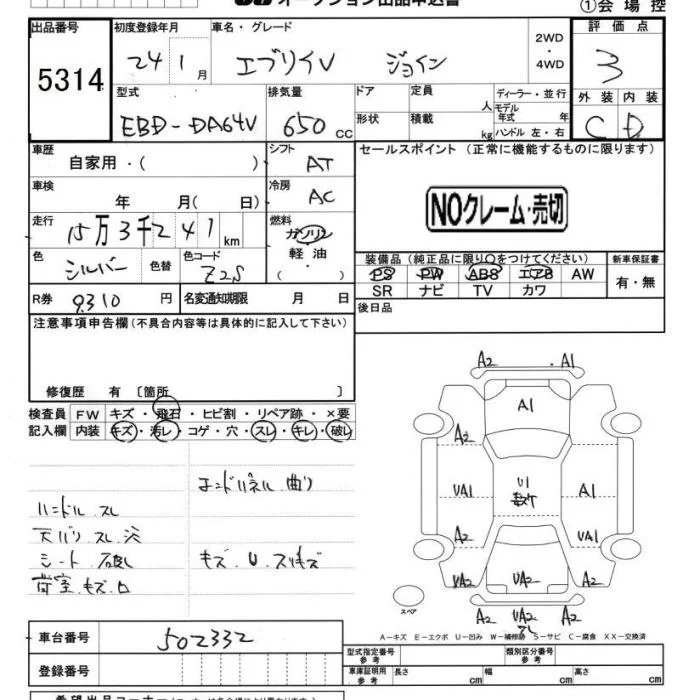 オークション出品申込書 ①会場控
出品番号 初度登録年月 車名・グレード 2WD・4WD 評価点
5314 24 1月 エブリイV ジョイン 3
型式 排気量 ドア 定員 人 ディーラー・並行 外装 内装
EBD-DA64V 650cc 形状 積載 kg モデル年式 年 ハンドル 左・右 C D
車歴 自家用・( ) シフト AT セールスポイント (正常に機能するものに限ります)
車検 年 月( 日) 冷房 AC
NOクレーム・売切
走行 15万3千241km 燃料 ガソリン 軽油 ( ・ )
色 シルバー 色替 色コード Z2S 装備品(純正品に限り○をつけてください) 新車保証書
PS PW ABS エアB AW 有・無
SR ナビ TV カワ
R券 9310円 名変通知期限 月 日 後日品
注意事項申告欄(不具合内容等は具体的に記入して下さい)
修復歴 有〔箇所 〕
検査員 FW キズ・飛石・ヒビ割・リペア跡・×要
記入欄 内装 キズ・汚レ・コゲ・穴・スレ・キレ・破レ
エンドパネル 曲り
ハンドル スレ
天バリ スレ
シート 破レ キズ.U.スリキズ
荷室 キズ
A2 A1
A1
A2
UA1 U1 A1
A2 UA1
UA2 UA2 A2
スペア
A2 UA2 A2
A-キズ E-エクボ U-凹み W-補修跡 S-サビ C-腐食 XX-交換済
車台番号 502332
型式指定番号 参考 類別区分番号 参考
登録番号 車庫証明用 参考 長さ cm 幅 cm 高さ cm